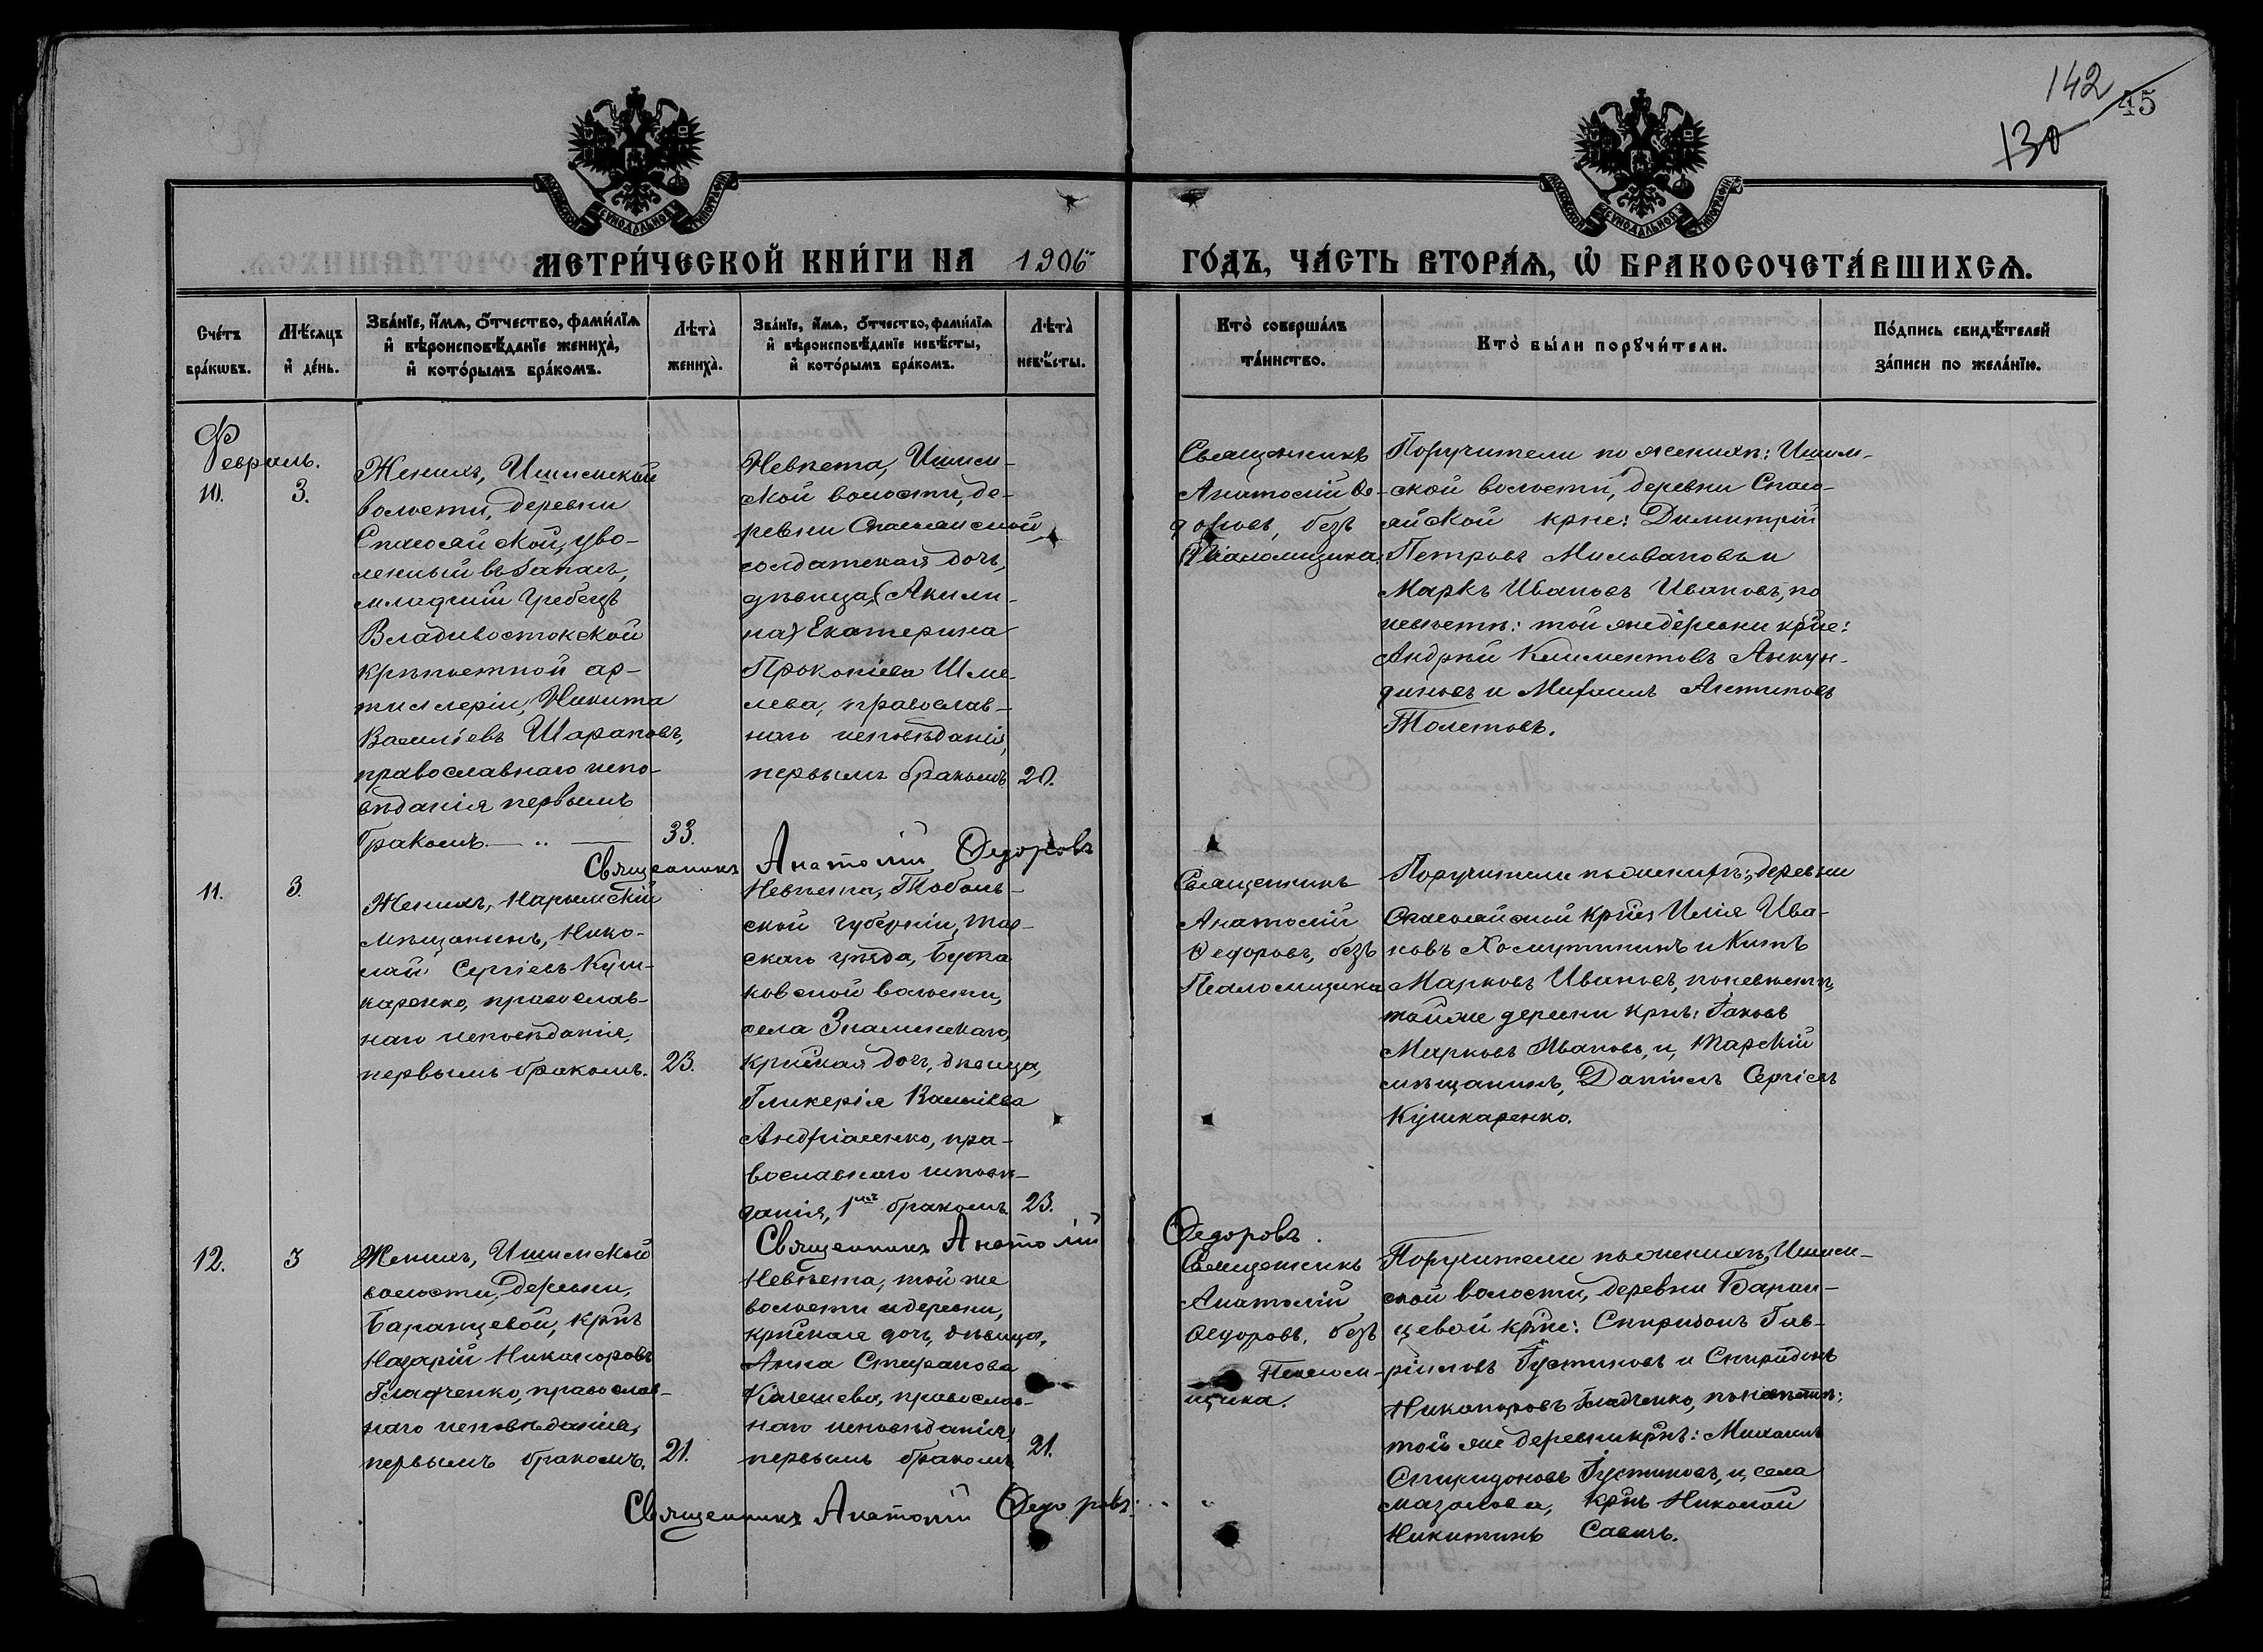 142
45
130
МЕТРИ́ЧЕСКОЙ КНИ́ГИ НА 1906 ГО́ДЪ, ЧА́СТЬ ВТОРА́Я, Ѽ БРАКОСОЧЕТА́ВШИХСЯ.
Сче́тъ бра́кωвъ.
Мѣ́сяцъ и҆ де́нь.
Зва́нїе, и҆́мя, о҆́тчество, фами́лїя
и҆ вѣроисповѣ́данїе жениха̀,
и҆ кото́рымъ бра́комъ.
Лѣта̀ жениха̀.
Зва́нїе, и҆́мя, о҆́тчество, фами́лїя
и҆ вѣроисповѣ́данїе невѣ́сты,
и҆ кото́рымъ бра́комъ.
Лѣта̀ невѣ́сты.
Кто̀ соверша́лъ та́инство.
Кто̀ бы́ли порꙋчи́тели.
По́дпись свидѣ́телей за́писи по жела́нїю.
Февраль.
10.
3.
Женихъ, Ишимской
волости, деревни
Спасояйской, уво-
ленный въ запасъ,
младшій
Владивостокской
крѣпостной ар-
тиллеріи, Никита
Васильевъ Шараповъ,
православнаго испо-
вѣданія первымъ
бракомъ.
33.
Невѣста, Ишим-
ской волости, де-
ревни Спасояйской,
солдатская дочь,
дѣвица, (Акили-
на) Екатерина
Прокопіева Шме-
лева, православ-
наго исповѣданія,
первымъ бракомъ
20.
Священникъ
Анатолій Ѳе-
доровъ, безъ
Псаломщика.
Поручители по женихѣ: Ишим-
ской волости, деревни Спасо-
яйской крне: Димитрій
Петровъ Миловановъ и
Маркъ Ивановъ Ивановъ, по
невѣстѣ: той же деревни крне:
Андрей Климентовъ Анкун-
диновъ и Михаилъ Антиповъ
Толстовъ.
Священникъ Анатолій Ѳедоровъ
11.
3.
Женихъ, Нарымскій
мѣщанинъ, Нико-
лай Сергіевъ Куш-
каренко, православ-
наго исповѣданія,
первымъ бракомъ.
23.
Невѣста, Тоболь-
ской губерніи, Тар-
скаго уѣзда, Бута
ковской волости,
села Знаменскаго,
крнская дочь, дѣвица,
Гликерія Васильева
Андріаненко, пра-
вославнаго исповѣ-
данія, 1мъ бракомъ
23.
Священникъ
Анатолій
Ѳедоровъ, безъ
Псаломщика
Поручители по женихѣ: деревни
Спасояйской крне Илія Ива-
новъ Хомутинниъ и Китъ
Марковъ Ивановъ, по невѣстѣ,
той же деревни крнъ: Іаковъ
Марковъ Ивановъ, и, Тарскій
мѣщанинъ, Даніилъ Сергіевъ
Кушкаренко.
Священникъ Анатолій Ѳедоровъ.
12.
3
Женихъ, Ишимской
волости, деревни,
Баранцевой, крнъ
Назарій Никаноровъ
Гладченко, православ-
наго исповѣданія,
первымъ бракомъ.
21.
Невѣста, той же
волости и деревни,
крнская дочь, дѣвица,
Анна
православ-
наго исповѣданія,
первымъ бракомъ
21.
Священникъ
Анатолій
Ѳедоровъ, безъ
Псалом-
щика.
Поручители по женихѣ, Ишим-
ской волости, деревни Баран-
цевой крне: Спиридонъ Гав-
ріиловъ Іустиновъ и Спиридонъ
Никаноровъ Гладченко, по невѣстѣ:
той же деревни крнъ: Михаилъ
Спиридоновъ Іустиновъ, и, села
Мазалова, крнъ Николай
Никитинъ Савичъ.
Священникъ Анатолій Ѳедоровъ.